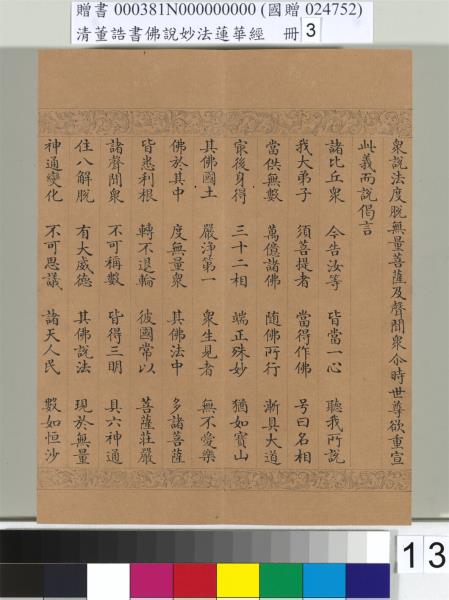 贈書 000381N000000000 (國贈 024752)
清董誥書佛說妙法蓮華經 冊 3
衆說法度脫無量菩薩及聲聞衆尒時世尊欲重宣
此義而說偈言
諸比丘衆 今告汝等 皆當一心 聽我所說
我大弟子 須菩提者 當得作佛 号曰名相
當供無數 萬億諸佛 隨佛所行 漸具大道
㝡後身得 三十二相 端正殊妙 猶如寶山
其佛國土 嚴淨第一 衆生見者 無不愛樂
佛於其中 度無量衆 其佛法中 多諸菩薩
皆悉利根 轉不退輪 彼國常以 菩薩莊嚴
諸聲聞衆 不可稱數 皆得三明 具六神通
住八解脫 有大威德 其佛說法 現於無量
神通變化 不可思議 諸天人民 數如恒沙
13